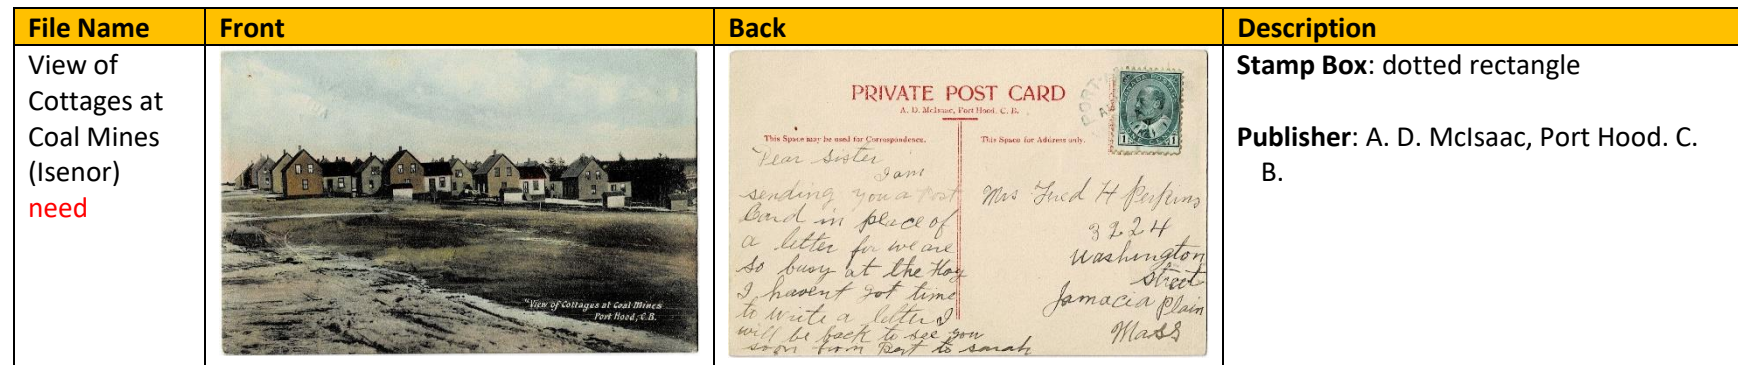 File Name
Front
Back
Description
View of
Cottages at
Coal Mines
(Isenor)
need
"View of Cottages at Coal Mines
Port Hood, C.B.
PRIVATE POST CARD
A. D. McIsaac, Port Hood. C. B.
This Space may be used for Correspondence.
This Space for Address only.
PORT
1 1
Dear Sister
I am
sending you a Post
Card in place of
a letter for we are
so busy at the Hay
I havent got time
to write a letter I
will be back to see you
soon from to sarah
Mrs Fred H Perkins
3224
Washington
Street
Jamacia Plain
Mass
Stamp Box: dotted rectangle
Publisher: A. D. McIsaac, Port Hood. C.
B.